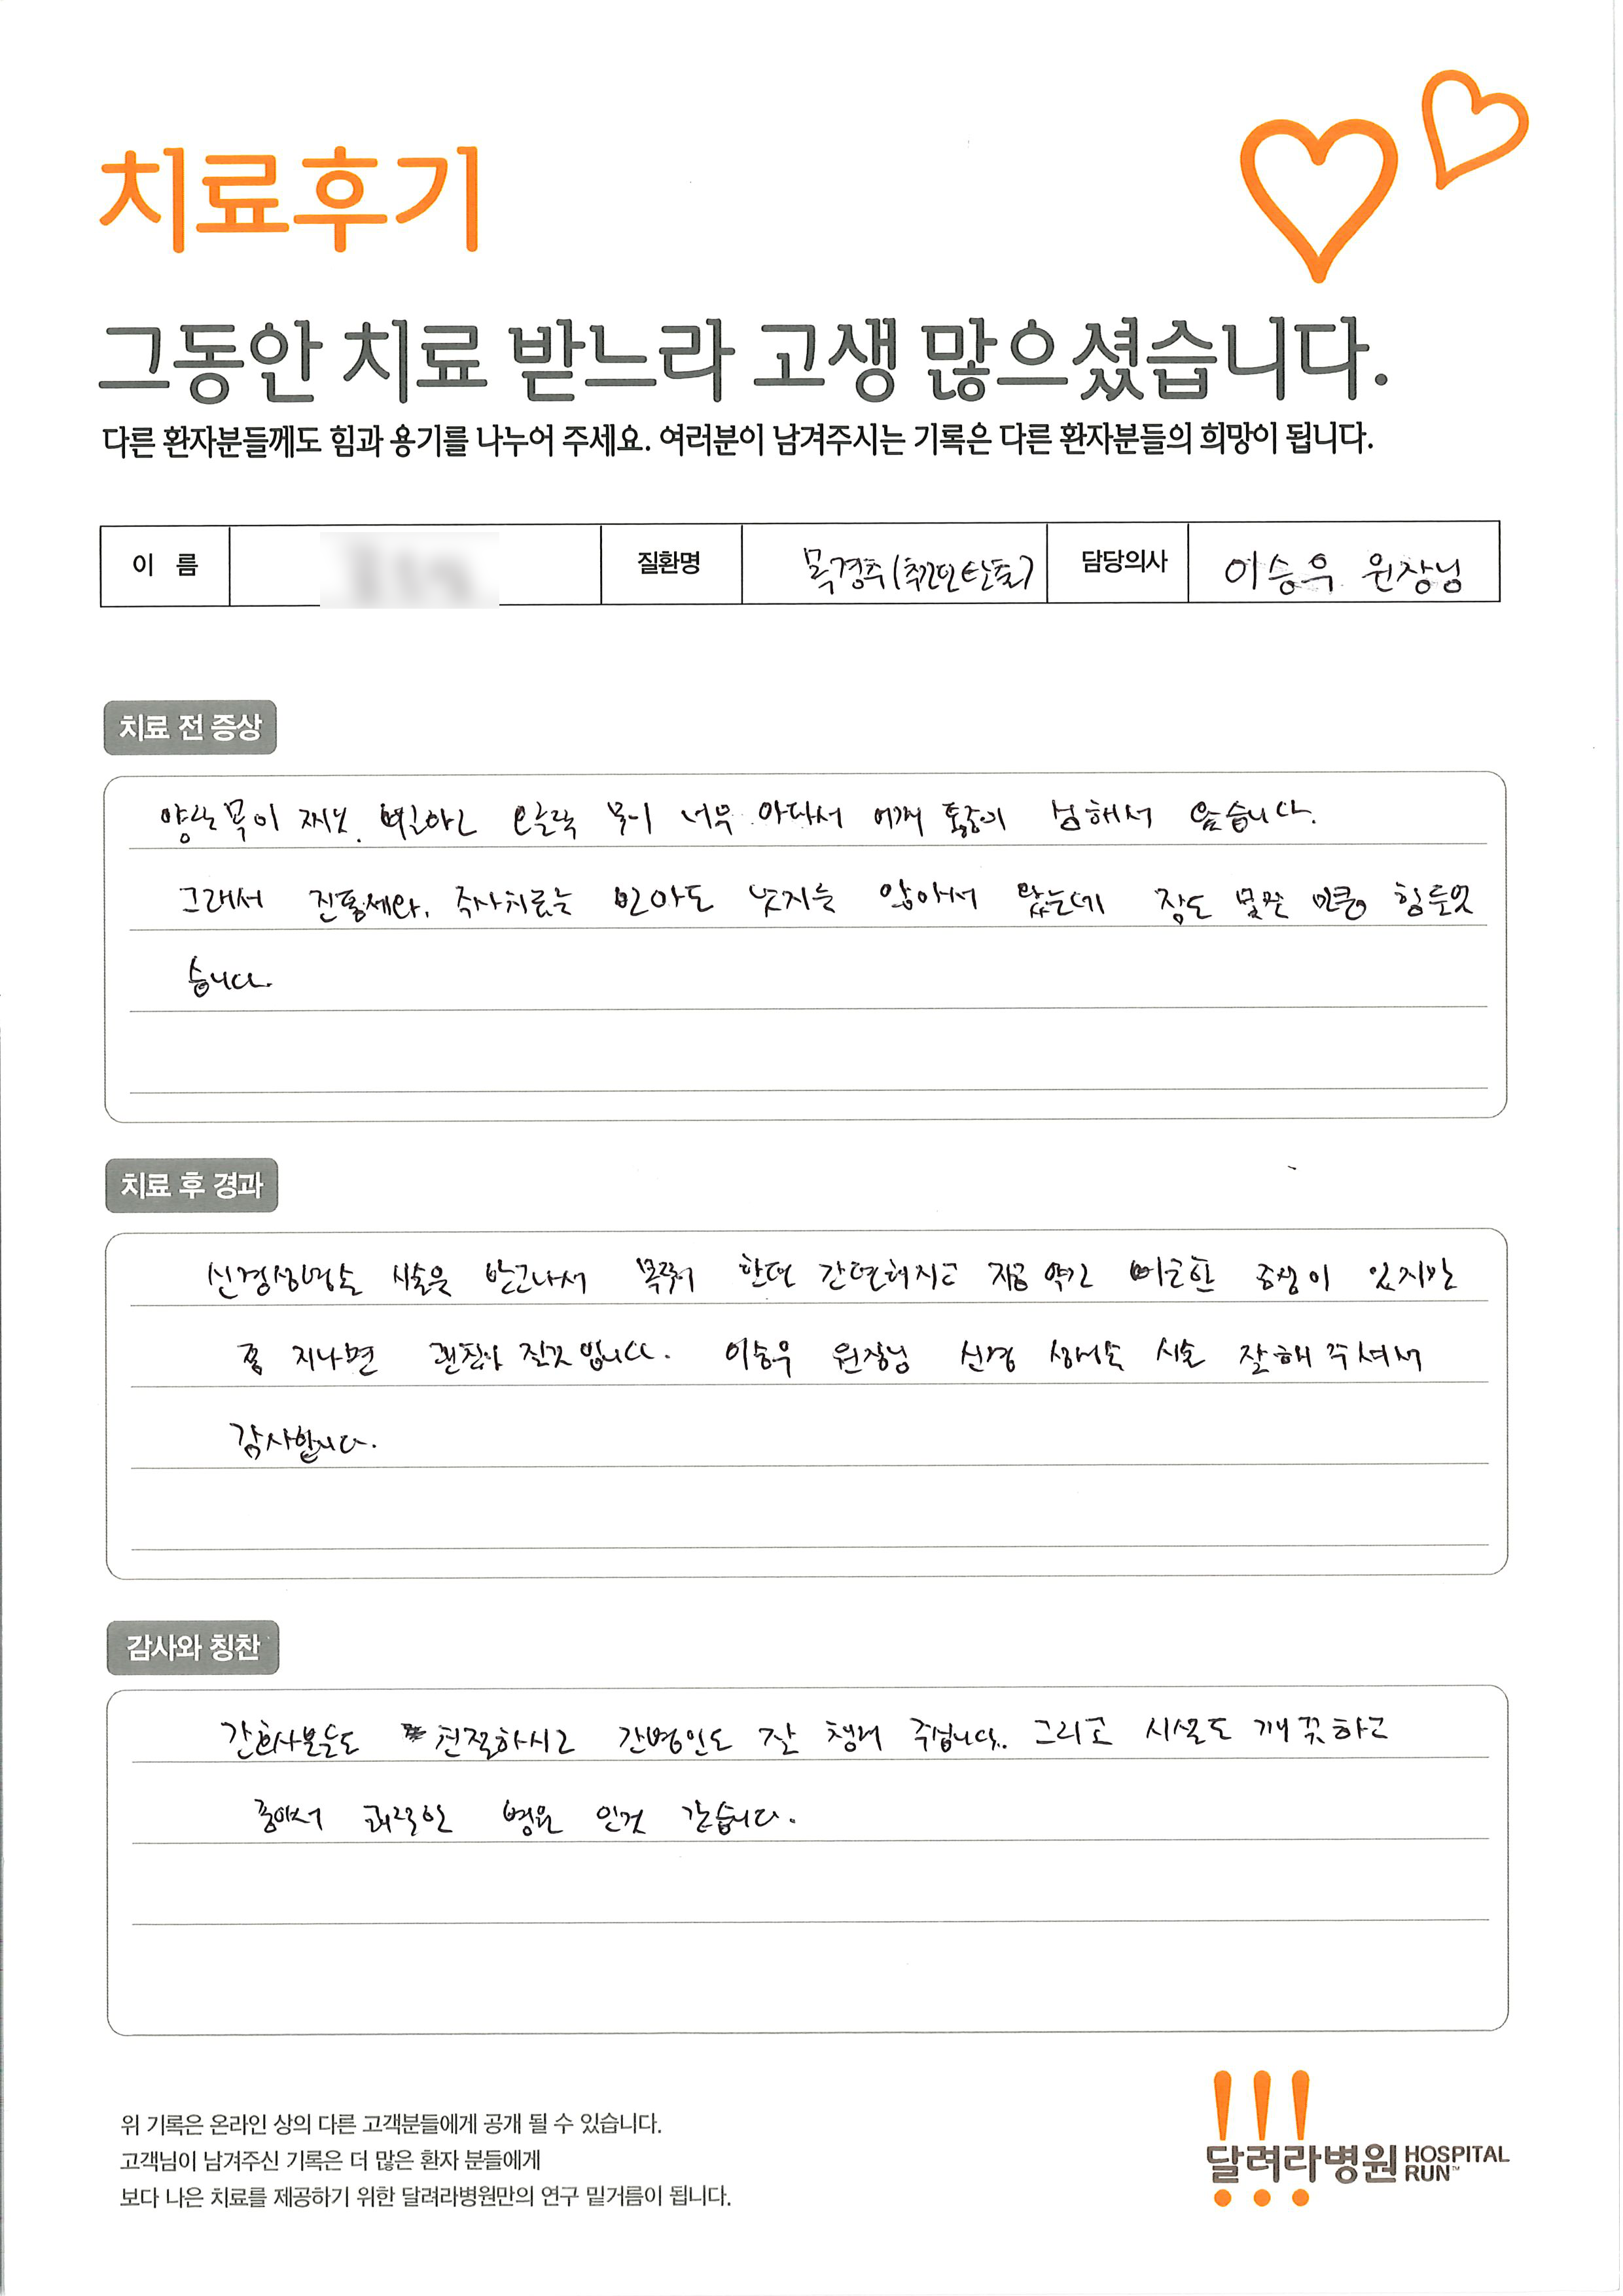 치료후기
그동안 치료 받느라 고생 많으셨습니다.
다른 환자분들께도 힘과 용기를 나누어 주세요. 여러분이 남겨주시는 기록은 다른 환자분들의 희망이 됩니다.
이 름 질환명 목경추 담당의사 이승우 원장님
치료 전 증상
목이 너무 어깨 통증이 심해서 왔습니다.
그래서 주사치료를 낫지는 않아서 왔는데 잠도 못잘 만큼 힘들었
습니다.
치료 후 경과
신경성형술 시술을 받고나서 한결 간편해지고 지금 약간 뻐근한 증상이 있지만
좀 지나면 괜찮아 질것 입니다. 이승우 원장님 신경 시술 잘해 주셔서
감사합니다.
감사와 칭찬
간호사분들도 친절하시고 간병인도 잘 챙겨 주십니다. 그리고 시설도 깨끗하고
좋아서 병원 인것 같습니다.
위 기록은 온라인 상의 다른 고객분들에게 공개 될 수 있습니다.
고객님이 남겨주신 기록은 더 많은 환자 분들에게
보다 나은 치료를 제공하기 위한 달려라병원만의 연구 밑거름이 됩니다.
달려라병원 HOSPITAL RUN™